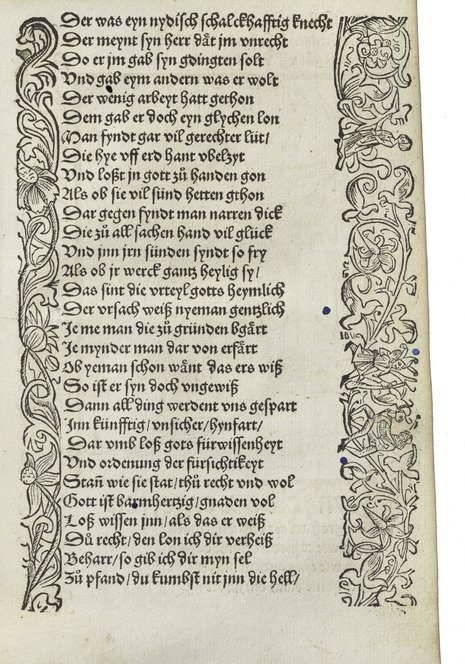 Der was eyn nydisch schalckhafftig knecht
Der meynt syn herr dät jm vnrecht
Do er jm gab syn gdingten solt
Vnd gab eym andern was er wolt
Der wenig arbeyt hatt gethon
Dem gab er doch eyn glychen lon
Man fyndt gar vil gerechter lüt/
Die hye vff erd hant vbelzyt
Vnd loßt jn gott zů handen gon
Als ob sie vil sünd hetten gthon
Dar gegen fyndt man narren dick
Die zů all sachen hand vil glück
Vnd jnn jrn sünden syndt so fry
Als ob jr werck gantz heylig sy/
Das sint die vrteyl gotts heymlich
Der vrsach weiß nyeman gentzlich
Je me man die zů gründen bgärt
Je mynder man dar von erfärt
Ob yeman schon wänt das ers wiß
So ist er syn doch vngewiß
Dann all ding werdent vns gespart
Jnn künfftig/vnsicher/hynfart/
Dar vmb loß gots fürwissenheyt
Vnd ordenung der fürsichtikeyt
Stan̄ wie sie stat/thů recht vnd wol
Gott ist barmhertzig/gnaden vol
Loß wissen jnn/als das er weiß
Dů recht/den lon ich dir verheiß
Beharr/so gib ich dir myn sel
Zů pfand/du kumbst nit jnn die hell/